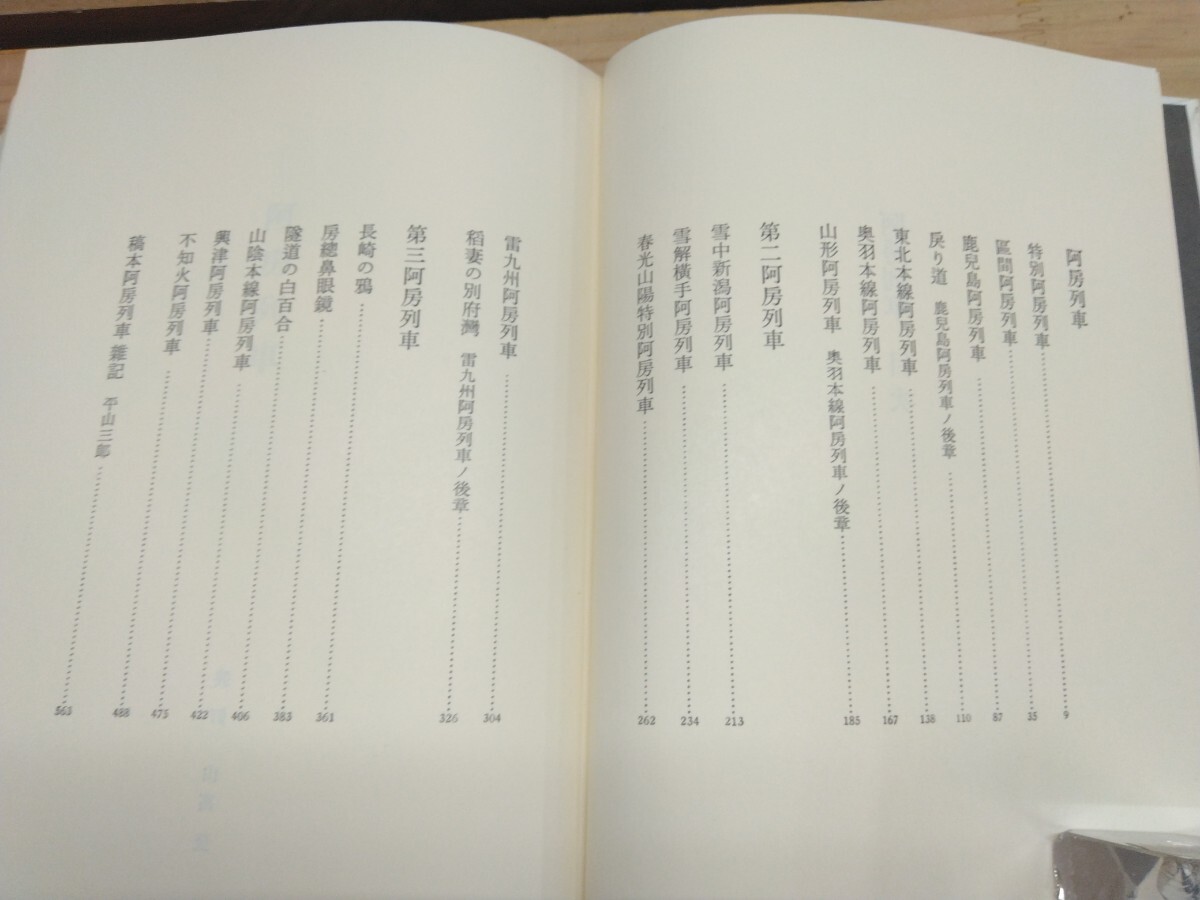 阿房列車
特別阿房列車 9
區間阿房列車 35
鹿兒島阿房列車 87
戻り道 鹿兒島阿房列車ノ後章 110
東北本線阿房列車 138
奥羽本線阿房列車 167
山形阿房列車 奥羽本線阿房列車ノ後章 185
第二阿房列車
雪中新潟阿房列車 213
雪解横手阿房列車 234
春光山陽特別阿房列車 262
雷九州阿房列車 304
稻妻の別府灣 雷九州阿房列車ノ後章 326
第三阿房列車
長崎の鴉 361
房總鼻眼鏡 383
隧道の白百合 406
山陰本線阿房列車 422
興津阿房列車 475
不知火阿房列車 488
稿本阿房列車 雜記 平山三郎 565